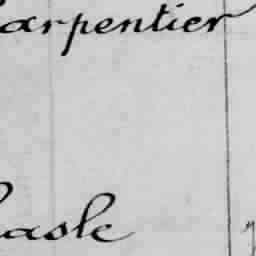 arpentier
asle